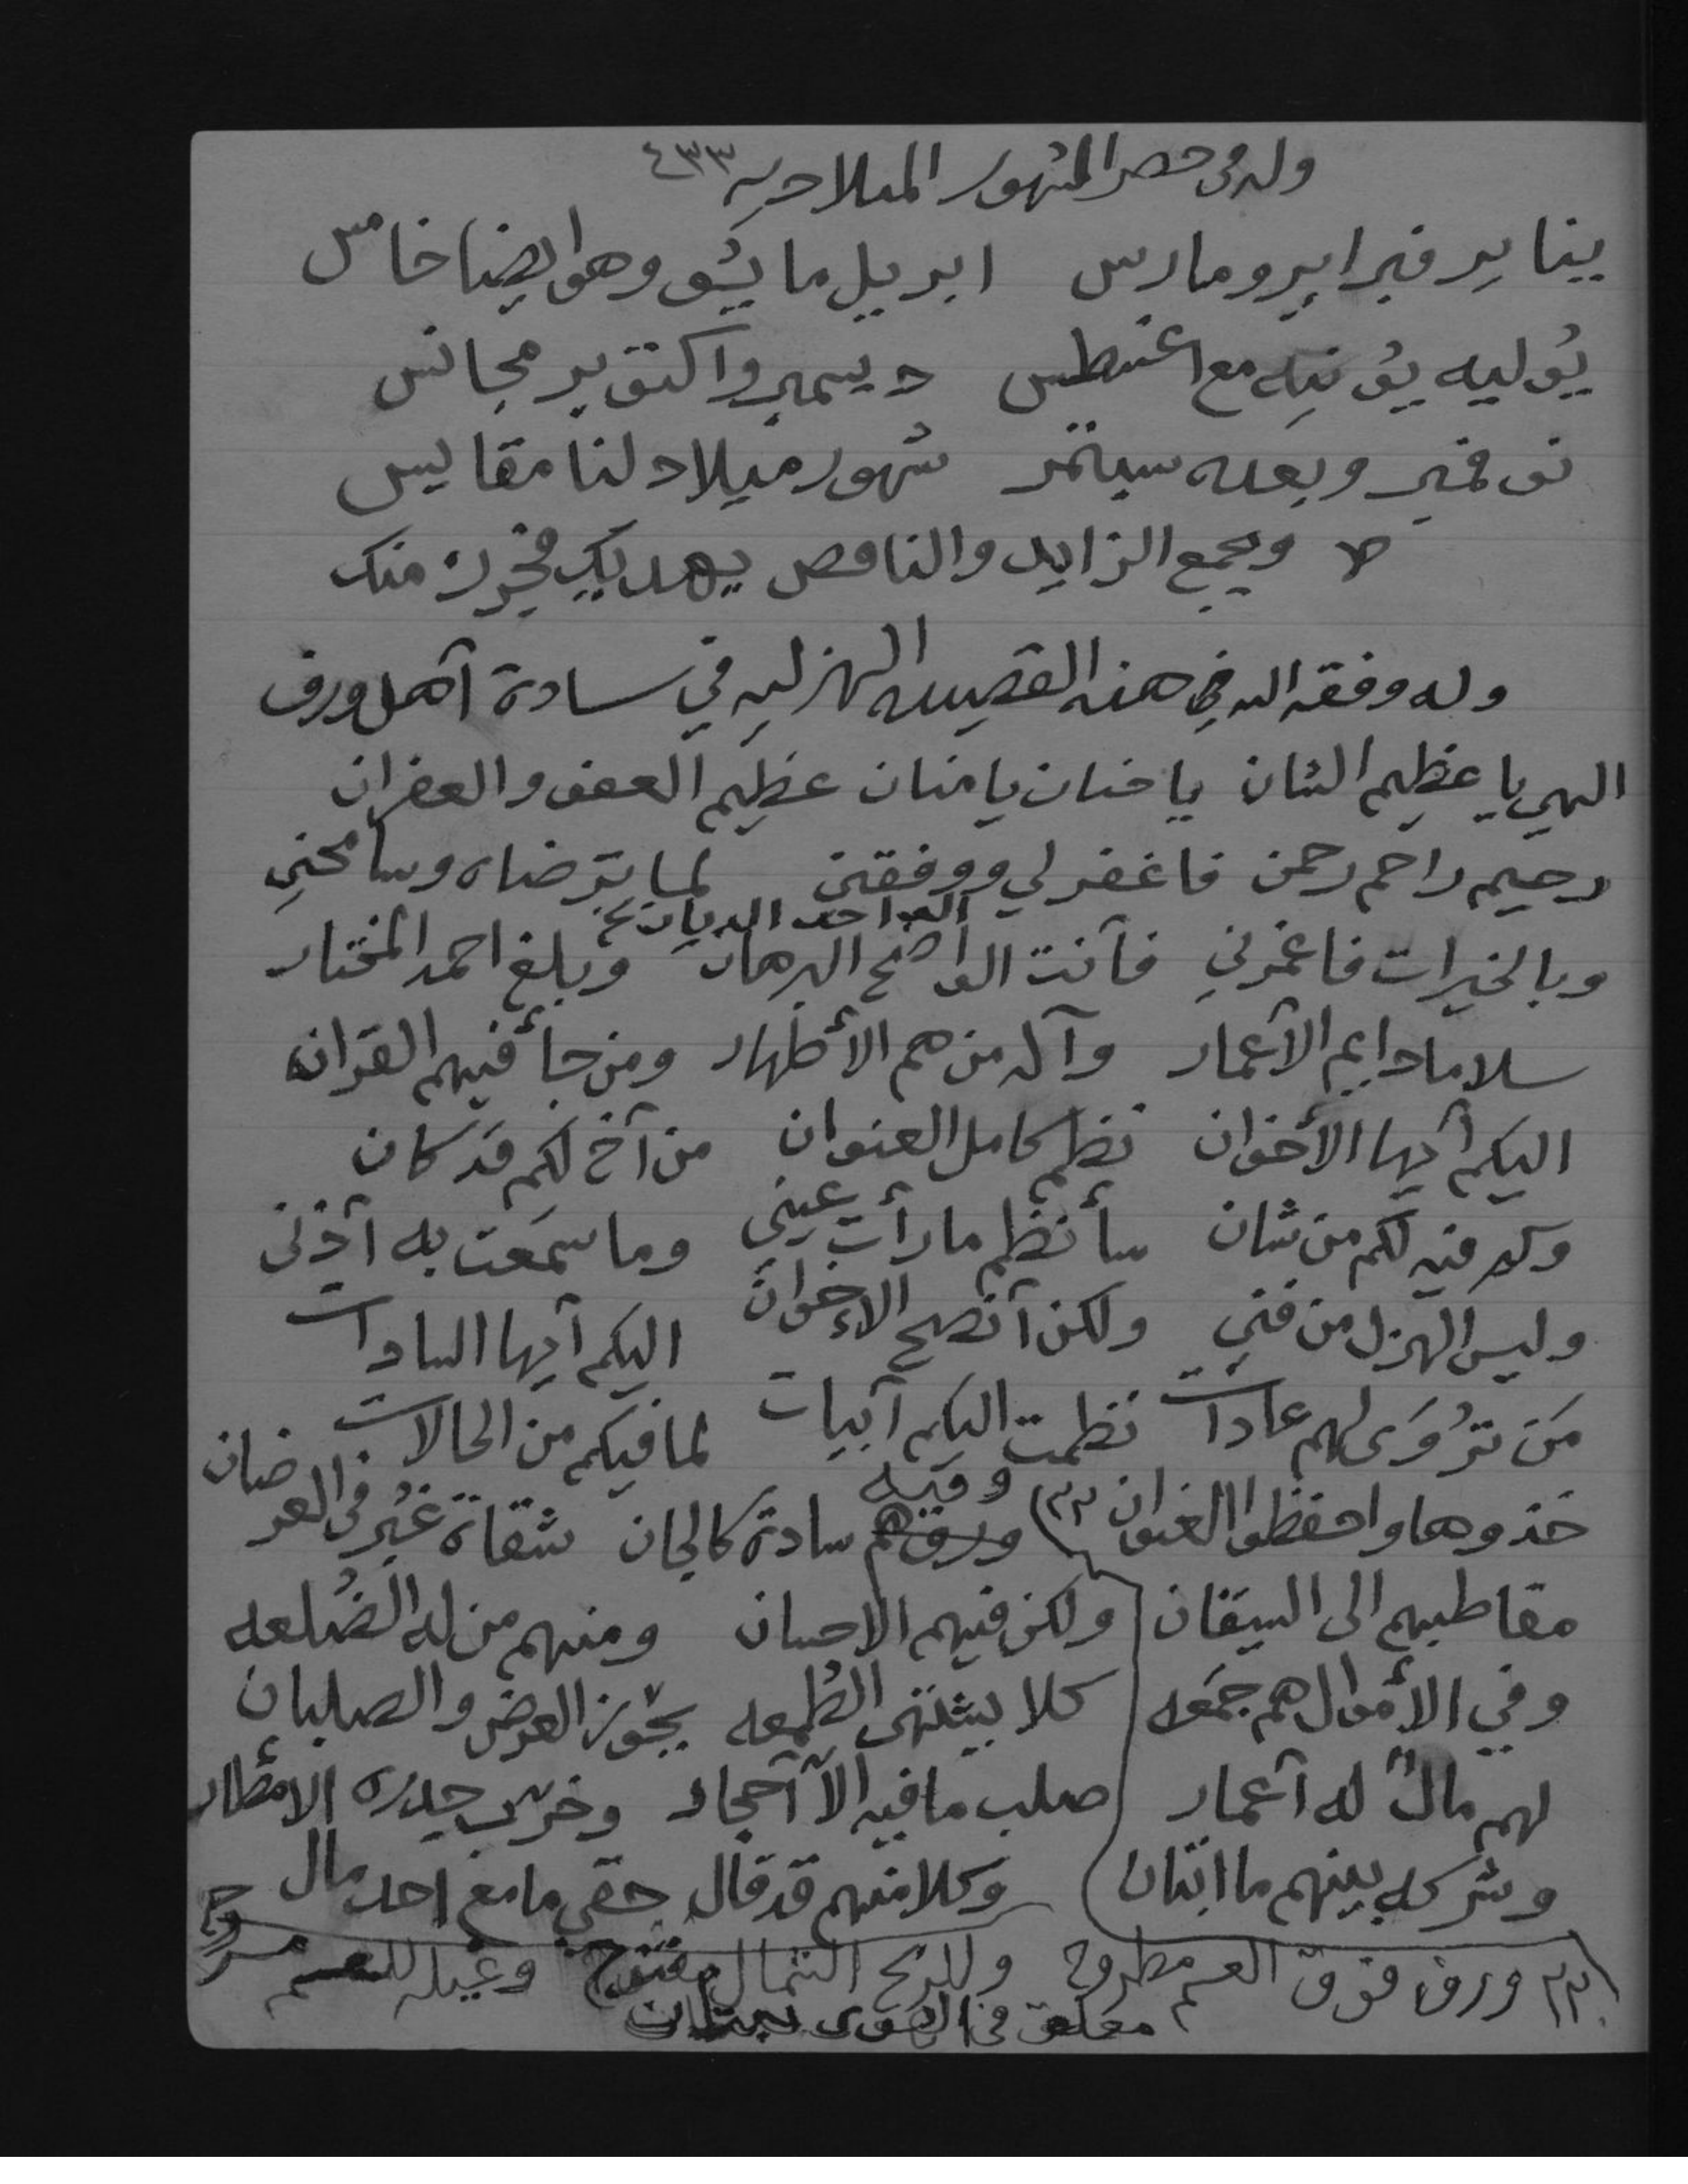 وله في حصر الشهور الميلاديه ٤٣٣
يناير فبراير ومارس ابريل مايو وهو ايضا خامس
يوليه يونيه مع اغسطس ديسمبر واكتوبر مجانس
نوفمبر وبعده سبتمبر شهور ميلاد لنا مقايس
ويجمع الزايد والناقص يهديك منك
وله وفقه الله في هذه القصيده الهزليه في سادة آهل ورف
الهي يا عظيم الشان يا حنان يا منان عظيم العفو والغفران
رحيم راحم رحمن فاغفر لي ووفقني لما ترضاه وسامحني
الواحد الديان
وبالخيرات فاغمرني فآنت الواضح البرهان وبلغ احمد المختار
سلاما دايم الآعمار وآله من هم الأطهار ومن جأ فيهم القران
اليكم آيها الأخوان نظم كامل العنوان من آخ لكم قد كان
وكم فيه لكم من شان سأنظم ما رأت عيني وما سمعت به آذني
وليس الهزل من فني ولكن آنصح الإخوان اليكم آيها السادات
من تروى لهم عادات نظمت اليكم آبيات لما فيكم من الحالات
خذوها واحفظوا العنوان وفيه سادة كالجان شقاة غبر في العرضان
مقاطبهم الى السيقان ولكن فيهم الاحسان ومنهم من له الضلعه
وفي الأموال هم جمعه كلا يشتهي الطمعه يحوز العرض والصلبان
لهم مال له آعمار صلب ما فيه الآ آحجار وخرب جدره الامطار
وشركه بينهم ما ابتان وكلا منهم قد قال حقي ما مع احد مال
ورف فوق العم مطروح وللريح الشمال مفتوح وغيله للعسم سروح
معلق في الهوى